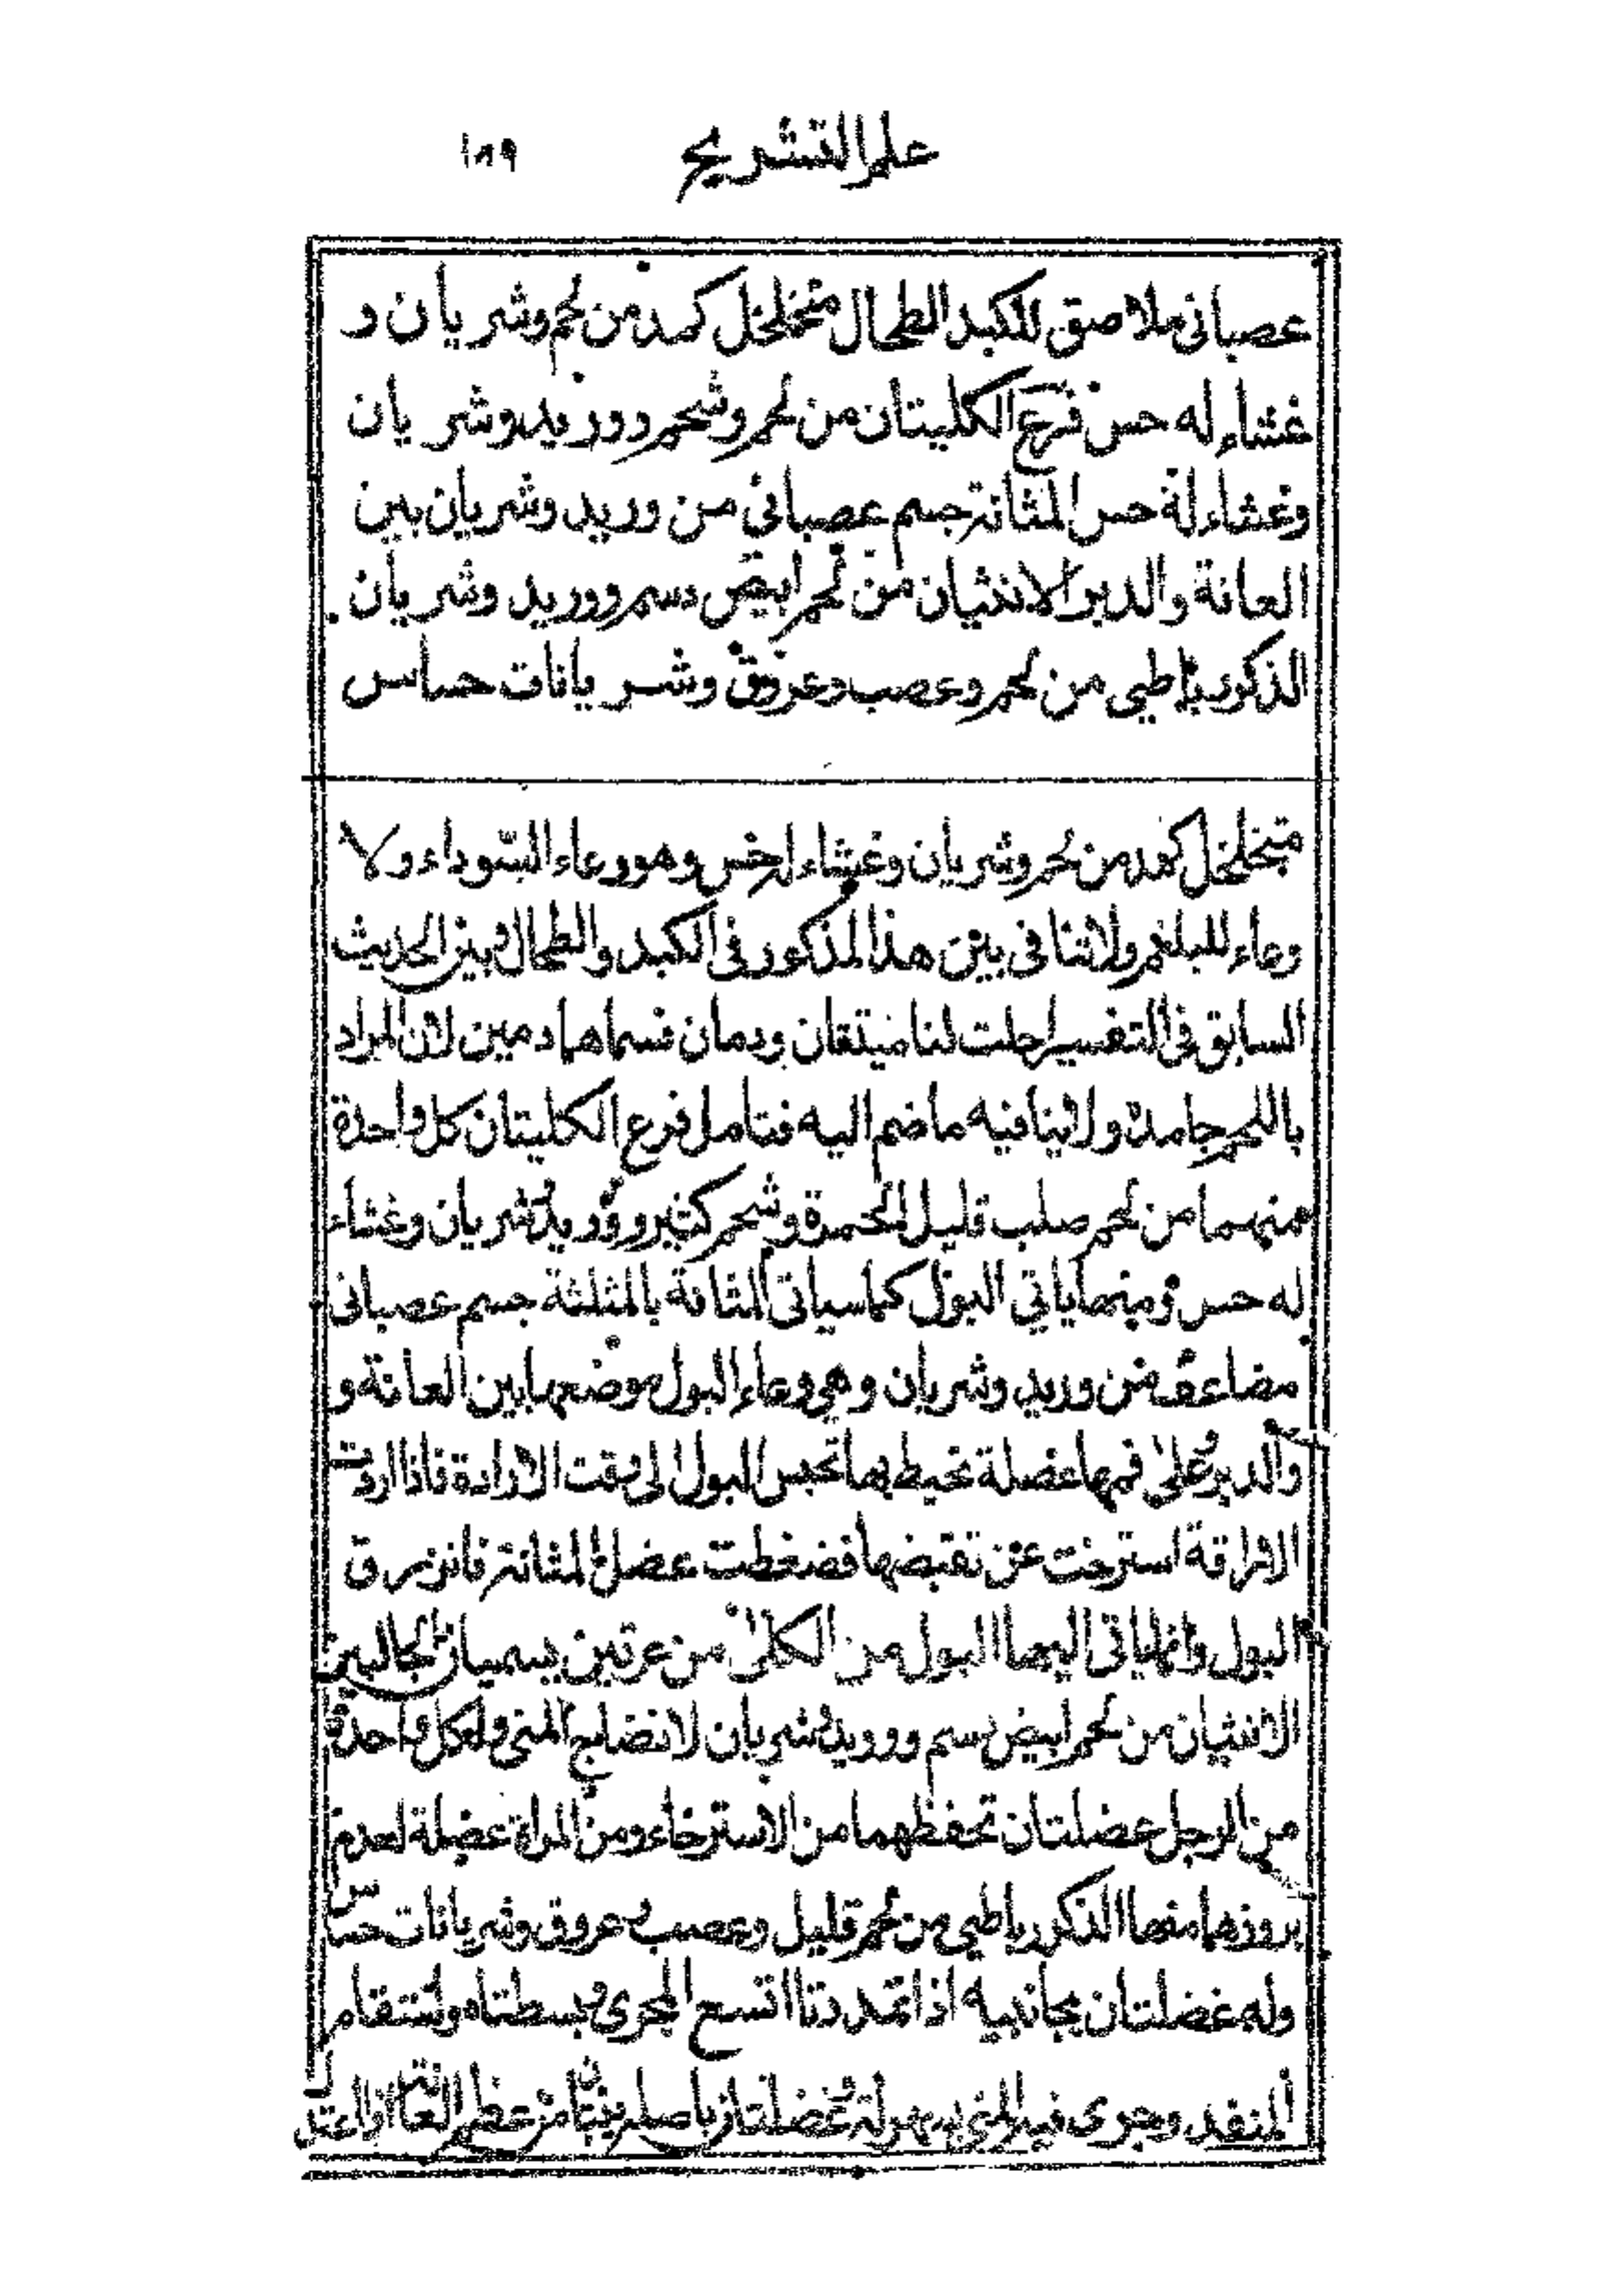 علم التشريح ١٨٩
عصبانى ملاصق للكبد الطحال متخلخل كمد من لحم وشريان و
غشاء له حس فرع الكليتان من لحم وشحم ووريد وشريان
وغشاء له حس المثانة جسم عصبانى من وريد وشريان بين
العانة والدبر الانثيان من لحم ابيض دسم ووريد وشريان
الذكر رباطى من لحم وعصب وعروق وشريانات حساس
متخلخل كمد من لحم وشريان وغشاء له حس وهو وعاء السوداء ولا
وعاء للبلغم ولا تنافى بين هذا المذكور فى الكبد والطحال وبين الحديث
السابق فى التفسير احلت لنا ميتتان ودمان فسماهما دمين لان المراد
باللحم جامده ولا ينافيه ما ضم اليه فتامل فرع الكليتان كل واحدة
منهما من لحم صلب قليل الحمرة وشحم كثير ووريد وشريان وغشاء
له حس ومنهما ياتى البول كما سياتى المثانة بالمثلثة جسم عصبانى
مضاعف من وريد وشريان وهى وعاء البول موضعها بين العانة و
والدبر وعلى فمها عضلة تحيط بها تحبس البول الى وقت الارادة فاذا اردت
الاراقة استرخت عن تقبضها فضغطت عضل المثانة فانزرق
البول وانما ياتى اليها البول من الكلى من عرقين يسميان الحالبين
الانثيان من لحم ابيض دسم ووريد وشريان لانضاج المنى ولكل واحدة
من الرجل عضلتان تحفظهما من الاسترخاء ومن المراة عضلة لعدم
بروزهما منها الذكر رباطى من لحم قليل وعصب وعروق وشريانات حساس
وله عضلتان بجانبيه اذا تمددتا اتسع المجرى وبسطتاه واستقام
المنفد وجرى فيه المنى بسهولة وعضلتان باصله ينبتان من عظم العانة اذا اعتدل